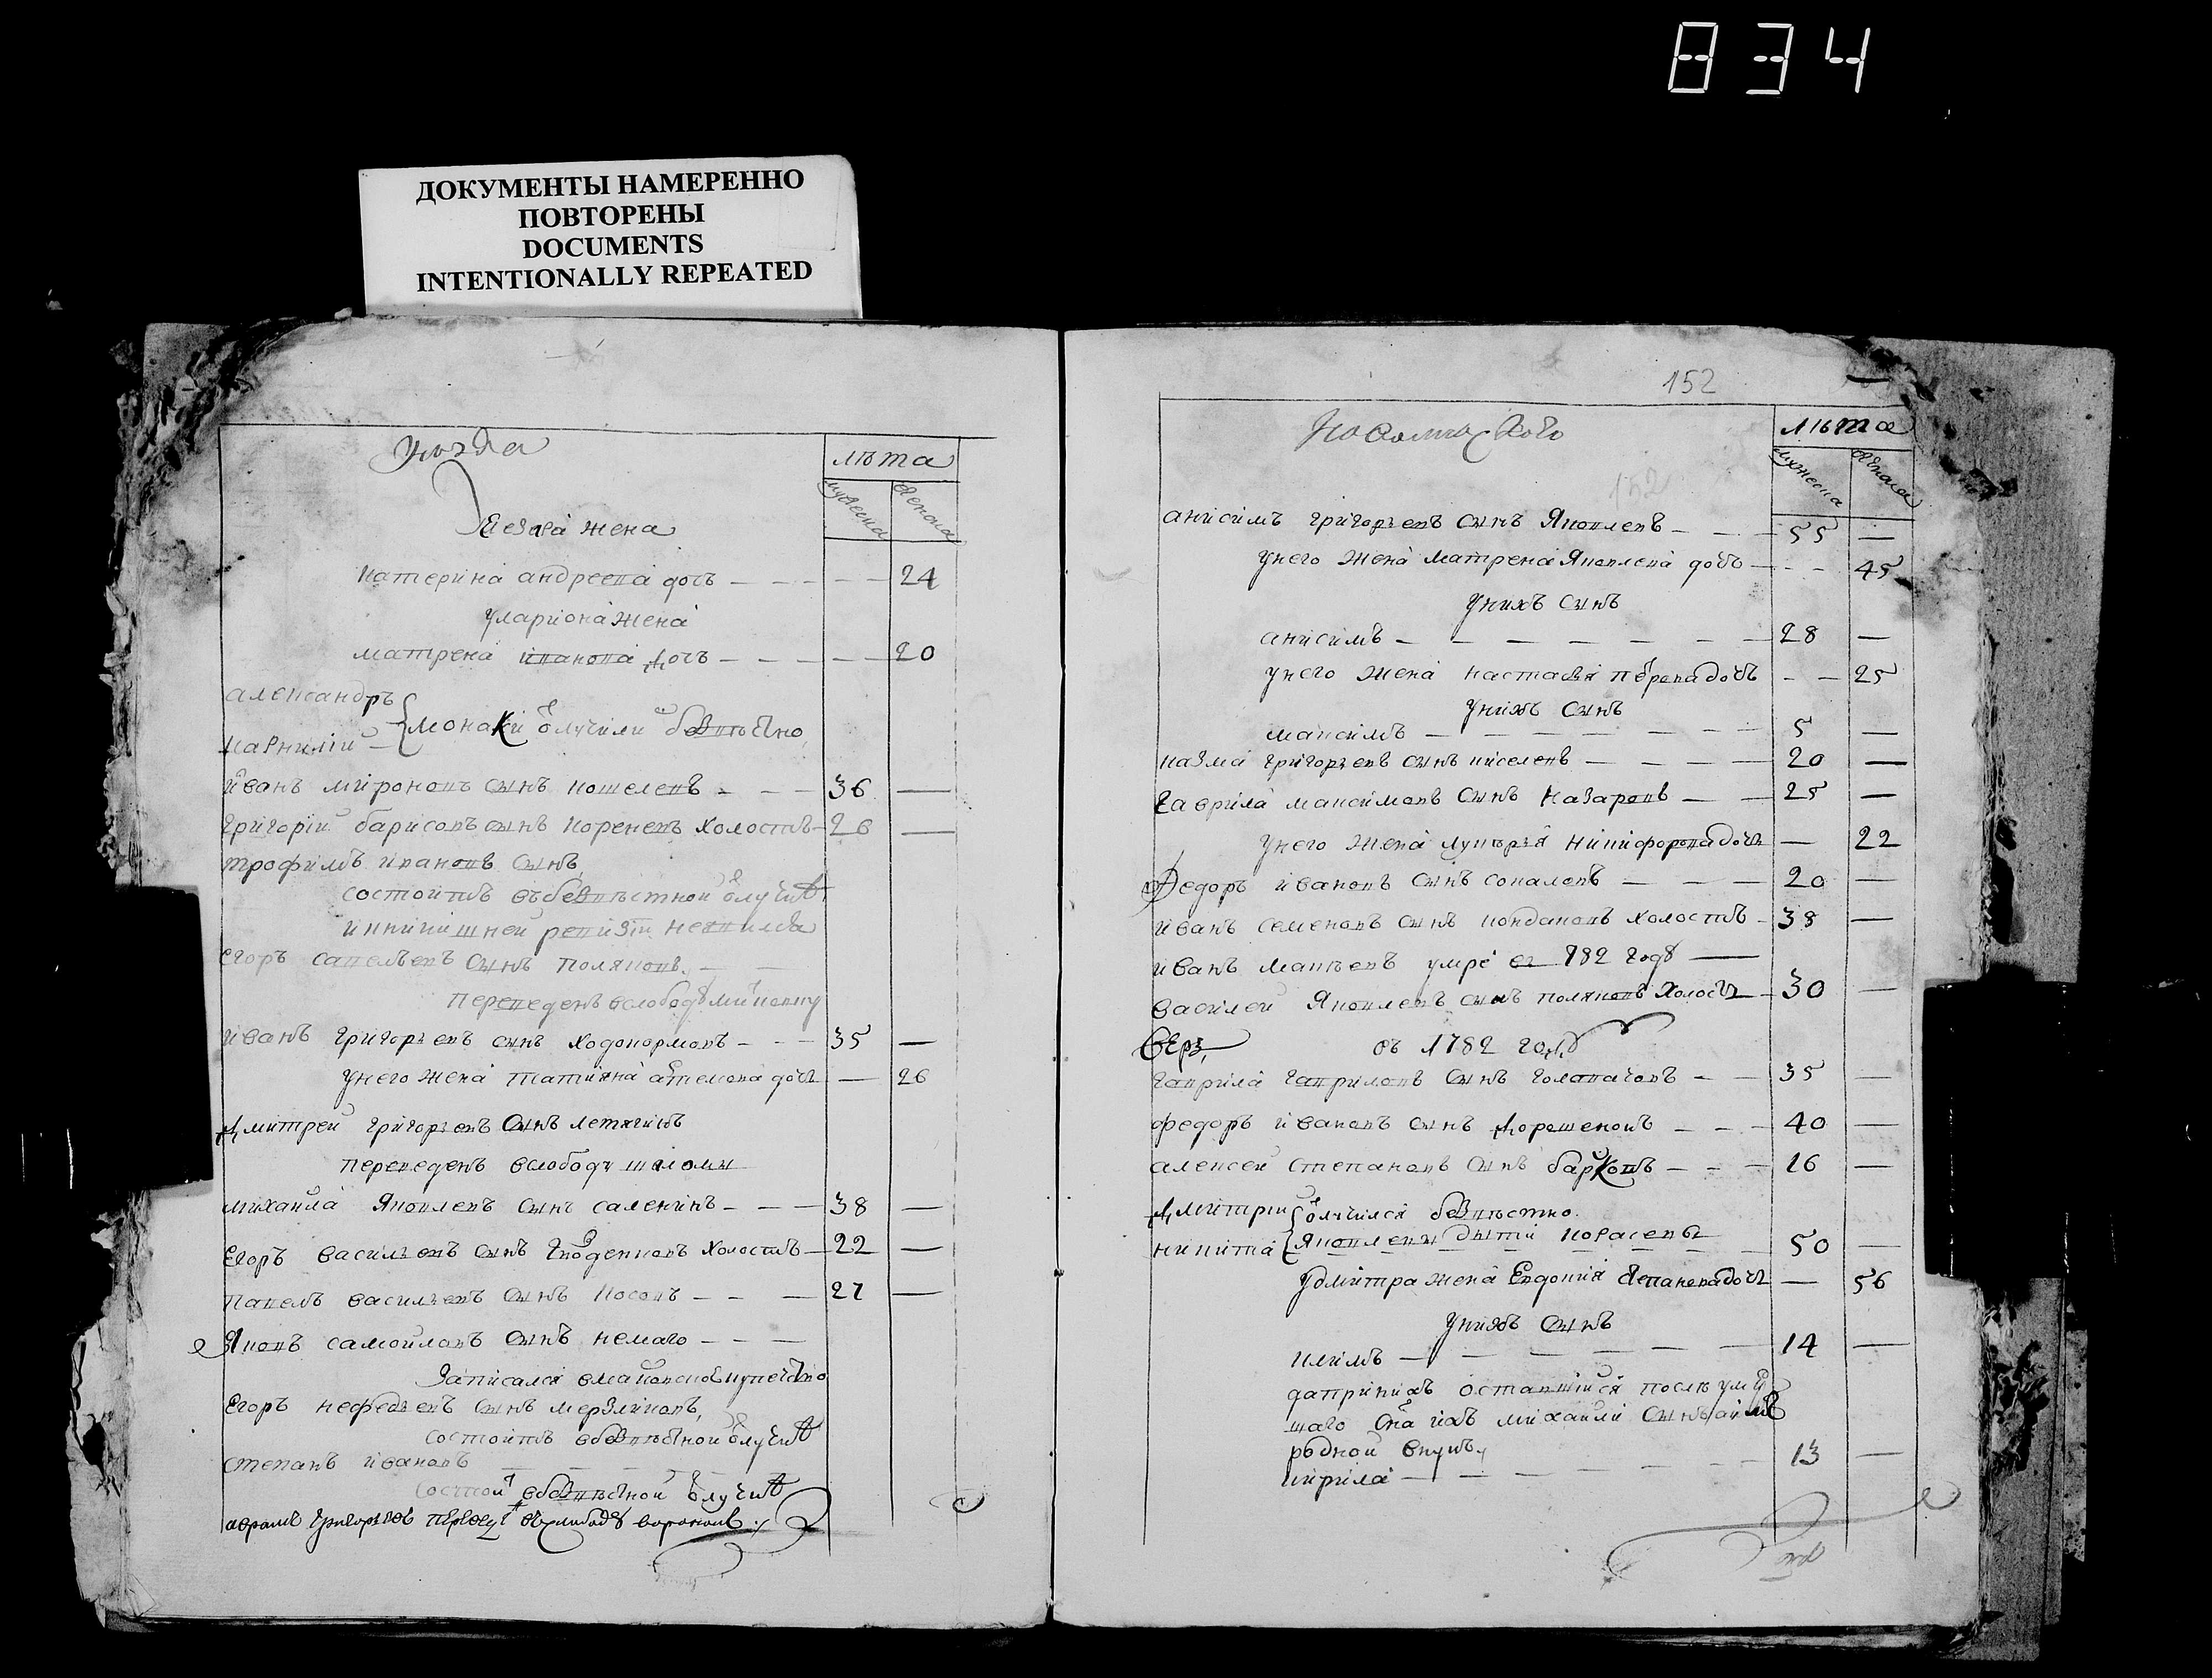 834
ДОКУМЕНТЫ НАМЕРЕННО
ПОВТОРЕНЫ
DOCUMENTS
INTENTIONALLY REPEATED
уѣзда
лѣта
мужеска
женска
жена
катерина андреева дочь — — — 24
у лариона жена
матрена иванова дочь — — — 20
александръ
карнилий
монахи отлучились безвѣстно
иванъ мироновъ сынъ кошелевъ — — 36 —
григорий барисовъ сынъ кореневъ холостъ — 26 —
трофимъ ивановъ сынъ
состоитъ въ безвѣстной отлучке
и в нинишней ревизии неявился
егоръ савельевъ сынъ поляковъ
переведенъ в слободу
иванъ григорьевъ сынъ ходокормовъ — — 35 —
у него жена татияна артемова дочь — 26
дмитрей григорьевъ сынъ летягинъ
переведенъ в слободу
михайла яковлевъ сынъ саленикъ — — 38 —
егоръ васильевъ сынъ холостъ — 22 —
павелъ васильевъ сынъ носовъ — — 27 —
яковъ самойловъ сынъ немаго — —
записался в купечество
егоръ нефедьевъ сынъ мерзликовъ
состоитъ в безвѣстной отлучке
степанъ ивановъ
состоитъ в безвѣстной отлучке
аврамъ григорьевъ переведенъ въ слободу
152
лѣта
мужеска
женска
152
анисимъ григорьевъ сынъ яковлевъ — — 55 —
у него жена матрена яковлева дочь — — 45
у нихъ сынъ
анисимъ — — — — — 28 —
у него жена настасья петрова дочь — — 25
у нихъ сынъ
максимъ — — — — — 5 —
казма григорьевъ сынъ киселевъ — — 20 —
гаврила максимовъ сынъ назаровъ — — 25 —
у него жена лукерья никифорова дочь — 22
федоръ ивановъ сынъ соколевъ — — 20 —
иванъ семеновъ сынъ кондаковъ холостъ — 38 —
иванъ умре въ 782 году —
василей яковлевъ сынъ поляковъ холостъ — 30 —
въ 1782 году
гаврила гавриловъ сынъ головачовъ — — 35 —
федоръ ивановъ сынъ дорошенковъ — — 40 —
алексей степановъ сынъ барковъ — — 16 —
дмитрий отлучился безвѣстно
никита яковлевы дѣти карасевы 50 —
у дмитра жена евдокия степанова дочь — 56
у нихъ сынъ
климъ — — — — — 14 —
да при нихъ оставшийся послѣ умер
шаго сна ихъ михайли сынъ а имъ
родной внукъ
кирила — — — — 13 —